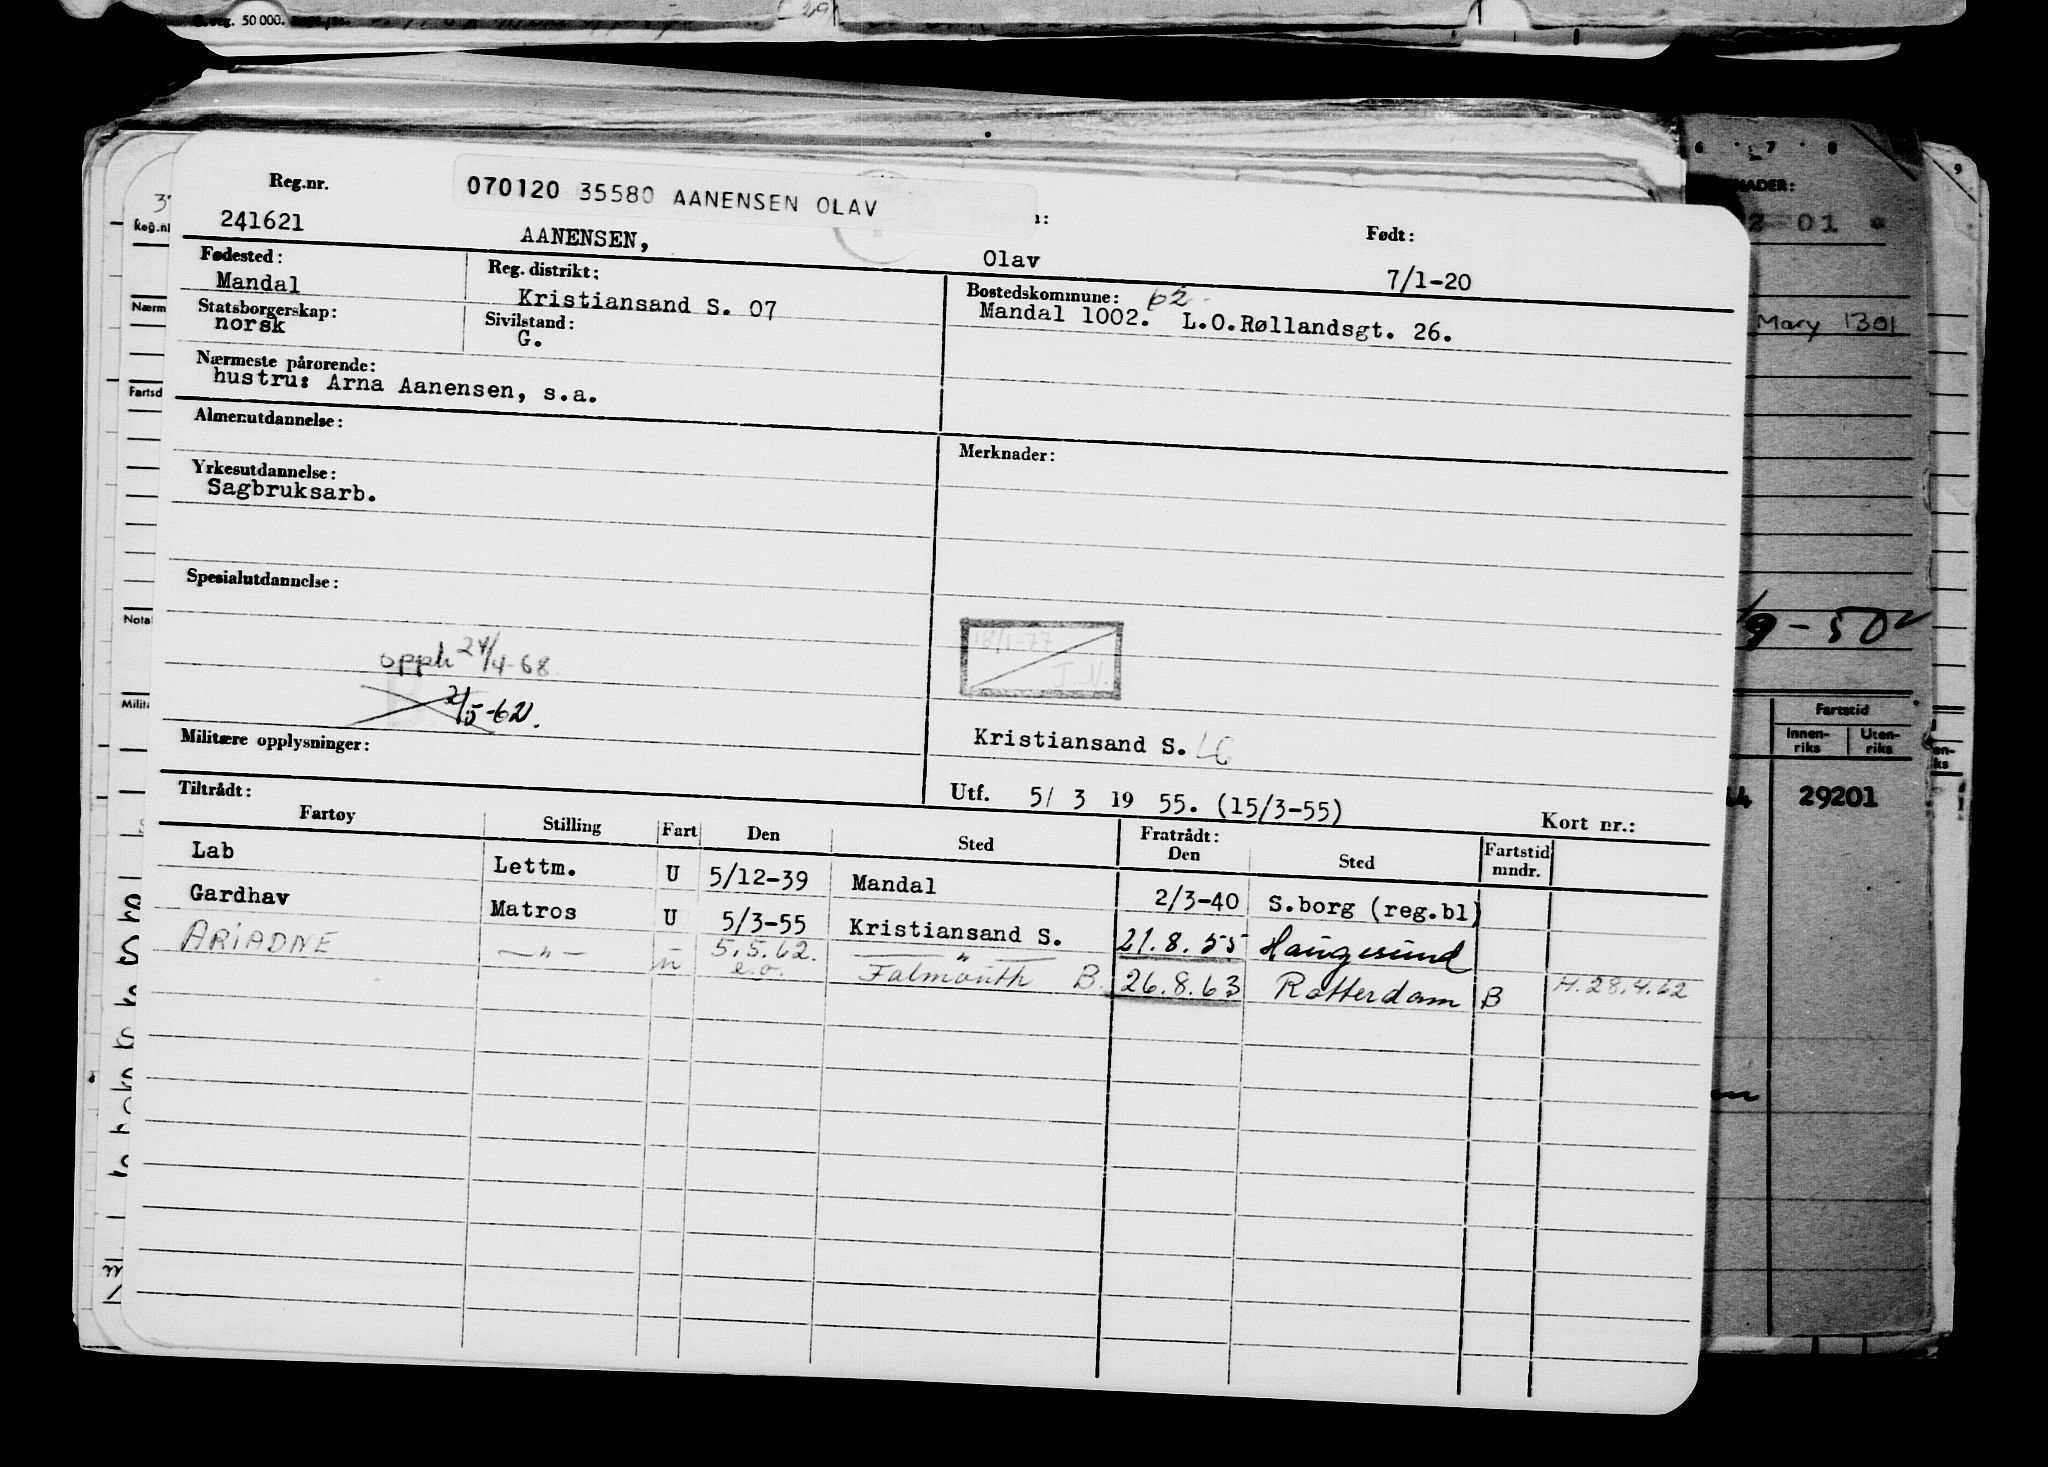 070120 35580 AANENSEN OLAV
Reg.nr. Født:
241621 AANENSEN, Olav 7/1-20
Fødested: Reg. distrikt: Bostedskommune: 62
Mandal Kristiansand S. 07 Mandal 1002. L.O.Røllandsgt. 26.
Statsborgerskap: Sivilstand:
norsk G.
Nærmeste pårørende:
hustru: Arna Aanensen, s.a.
Almenutdannelse: Merknader:
Yrkesutdannelse:
Sagbruksarb.
Spesialutdannelse:
18/1-77
J.N.
opph 24/4-68
21/5-62.
Kristiansand S.
Militære opplysninger:
Utf. 5/ 3 19 55. (15/3-55) Kort nr.:
Tiltrådt: Fratrådt:
Fartøy Stilling Fart Den Sted Den Sted Fartstid mndr.
Lab Lettm. U 5/12-39 Mandal 2/3-40 S.borg (reg.bl)
Gardhav Matros U 5/3-55 Kristiansand S. 21.8.55 Haugesund
ARIADNE —"— " 5.5.62. e.o. " Falmouth B. 26.8.63 Rotterdam B H.28.4.62
50 000.
6 7 8
9
01
Mary 1301
9-50
Fartstid
Innen-
riks
Uten-
riks
29201
Reg.nr
Nærm
Fartsd
Nota
Milita